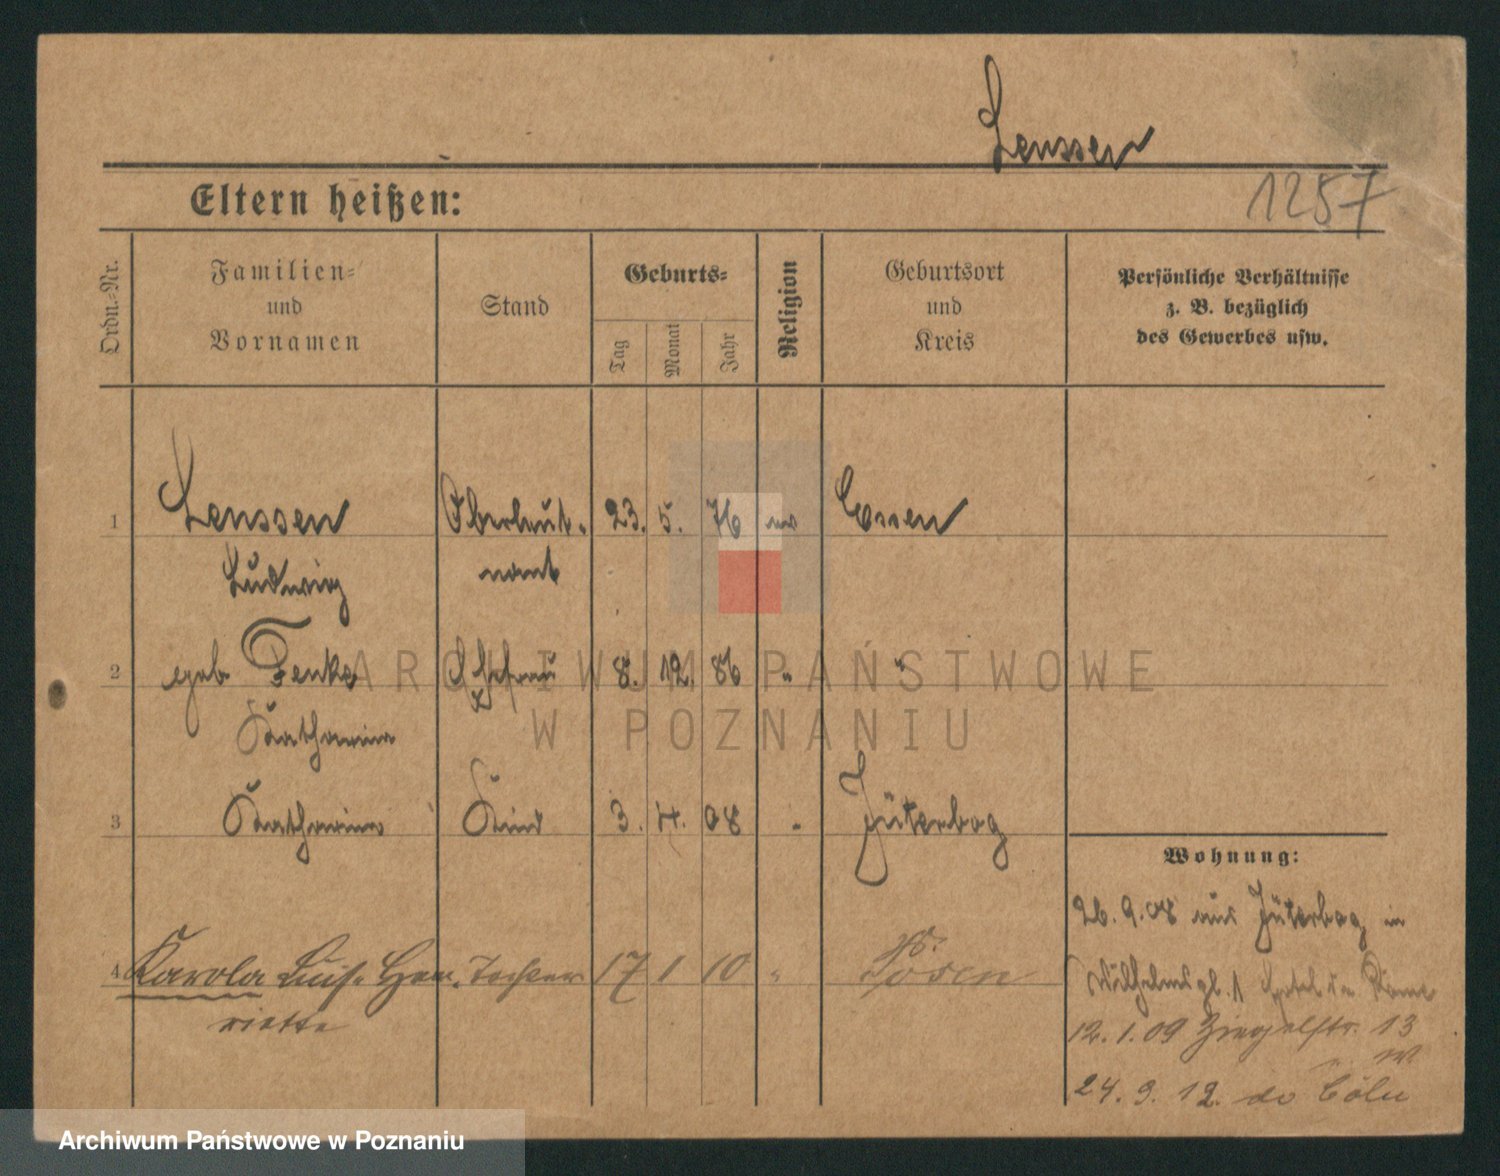 Lenssen
Eltern heißen:
1257
Ordn.-Nr.
Familien-
und
Vornamen
Stand
Geburts-
Tag
Monat
Jahr
Religion
Geburtsort
und
Kreis
Persönliche Verhältnisse
z. B. bezüglich
des Gewerbes usw.
1 Lenssen Oberleut- 23. 5. 76 ev Essen
Ludwig nant
2 geb. Fenke Ehefrau 8. 12. 86 " "
Katharina
3 Katharina Kind 3. 4. 08 " Jüterbog
4 Karola Luise Hen- Tochter 17 1 10 " Posen
riette
Wohnung:
26. 9. 08 aus Jüterbog in
Wilhelmspl. 1 Hotel de Rome
12. 1. 09 Ziegelstr. 13
24. 9. 12. do Cöln
ARCHIWUM PAŃSTWOWE
W POZNANIU
Archiwum Państwowe w Poznaniu